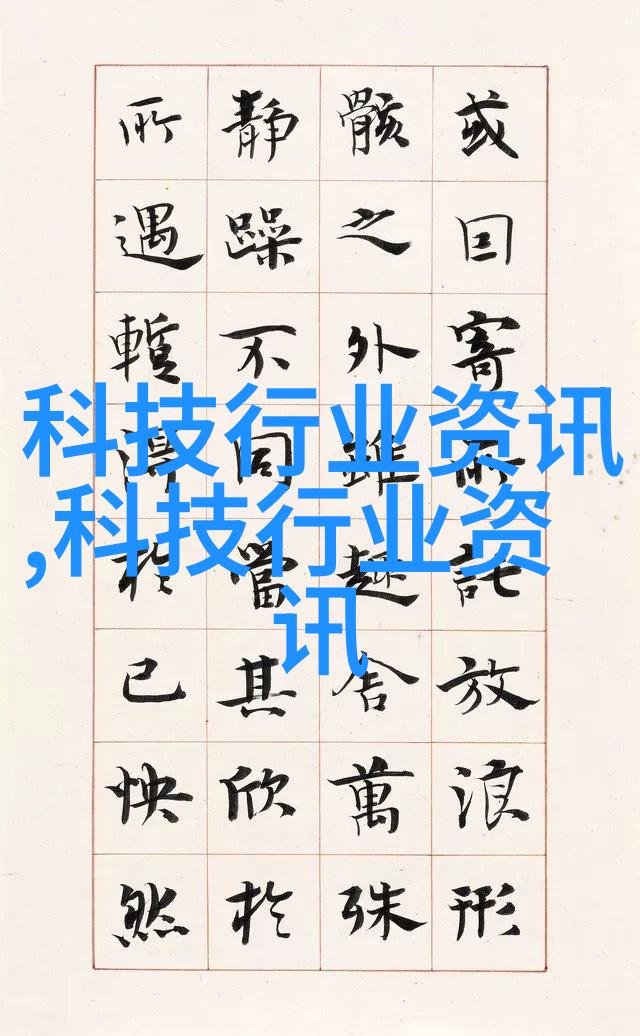 或因寄所託放浪形
骸之外雖趣舍萬殊
静躁不同當其欣於
所遇暫得於己怏然
科技行业资讯
,科技行业资
讯